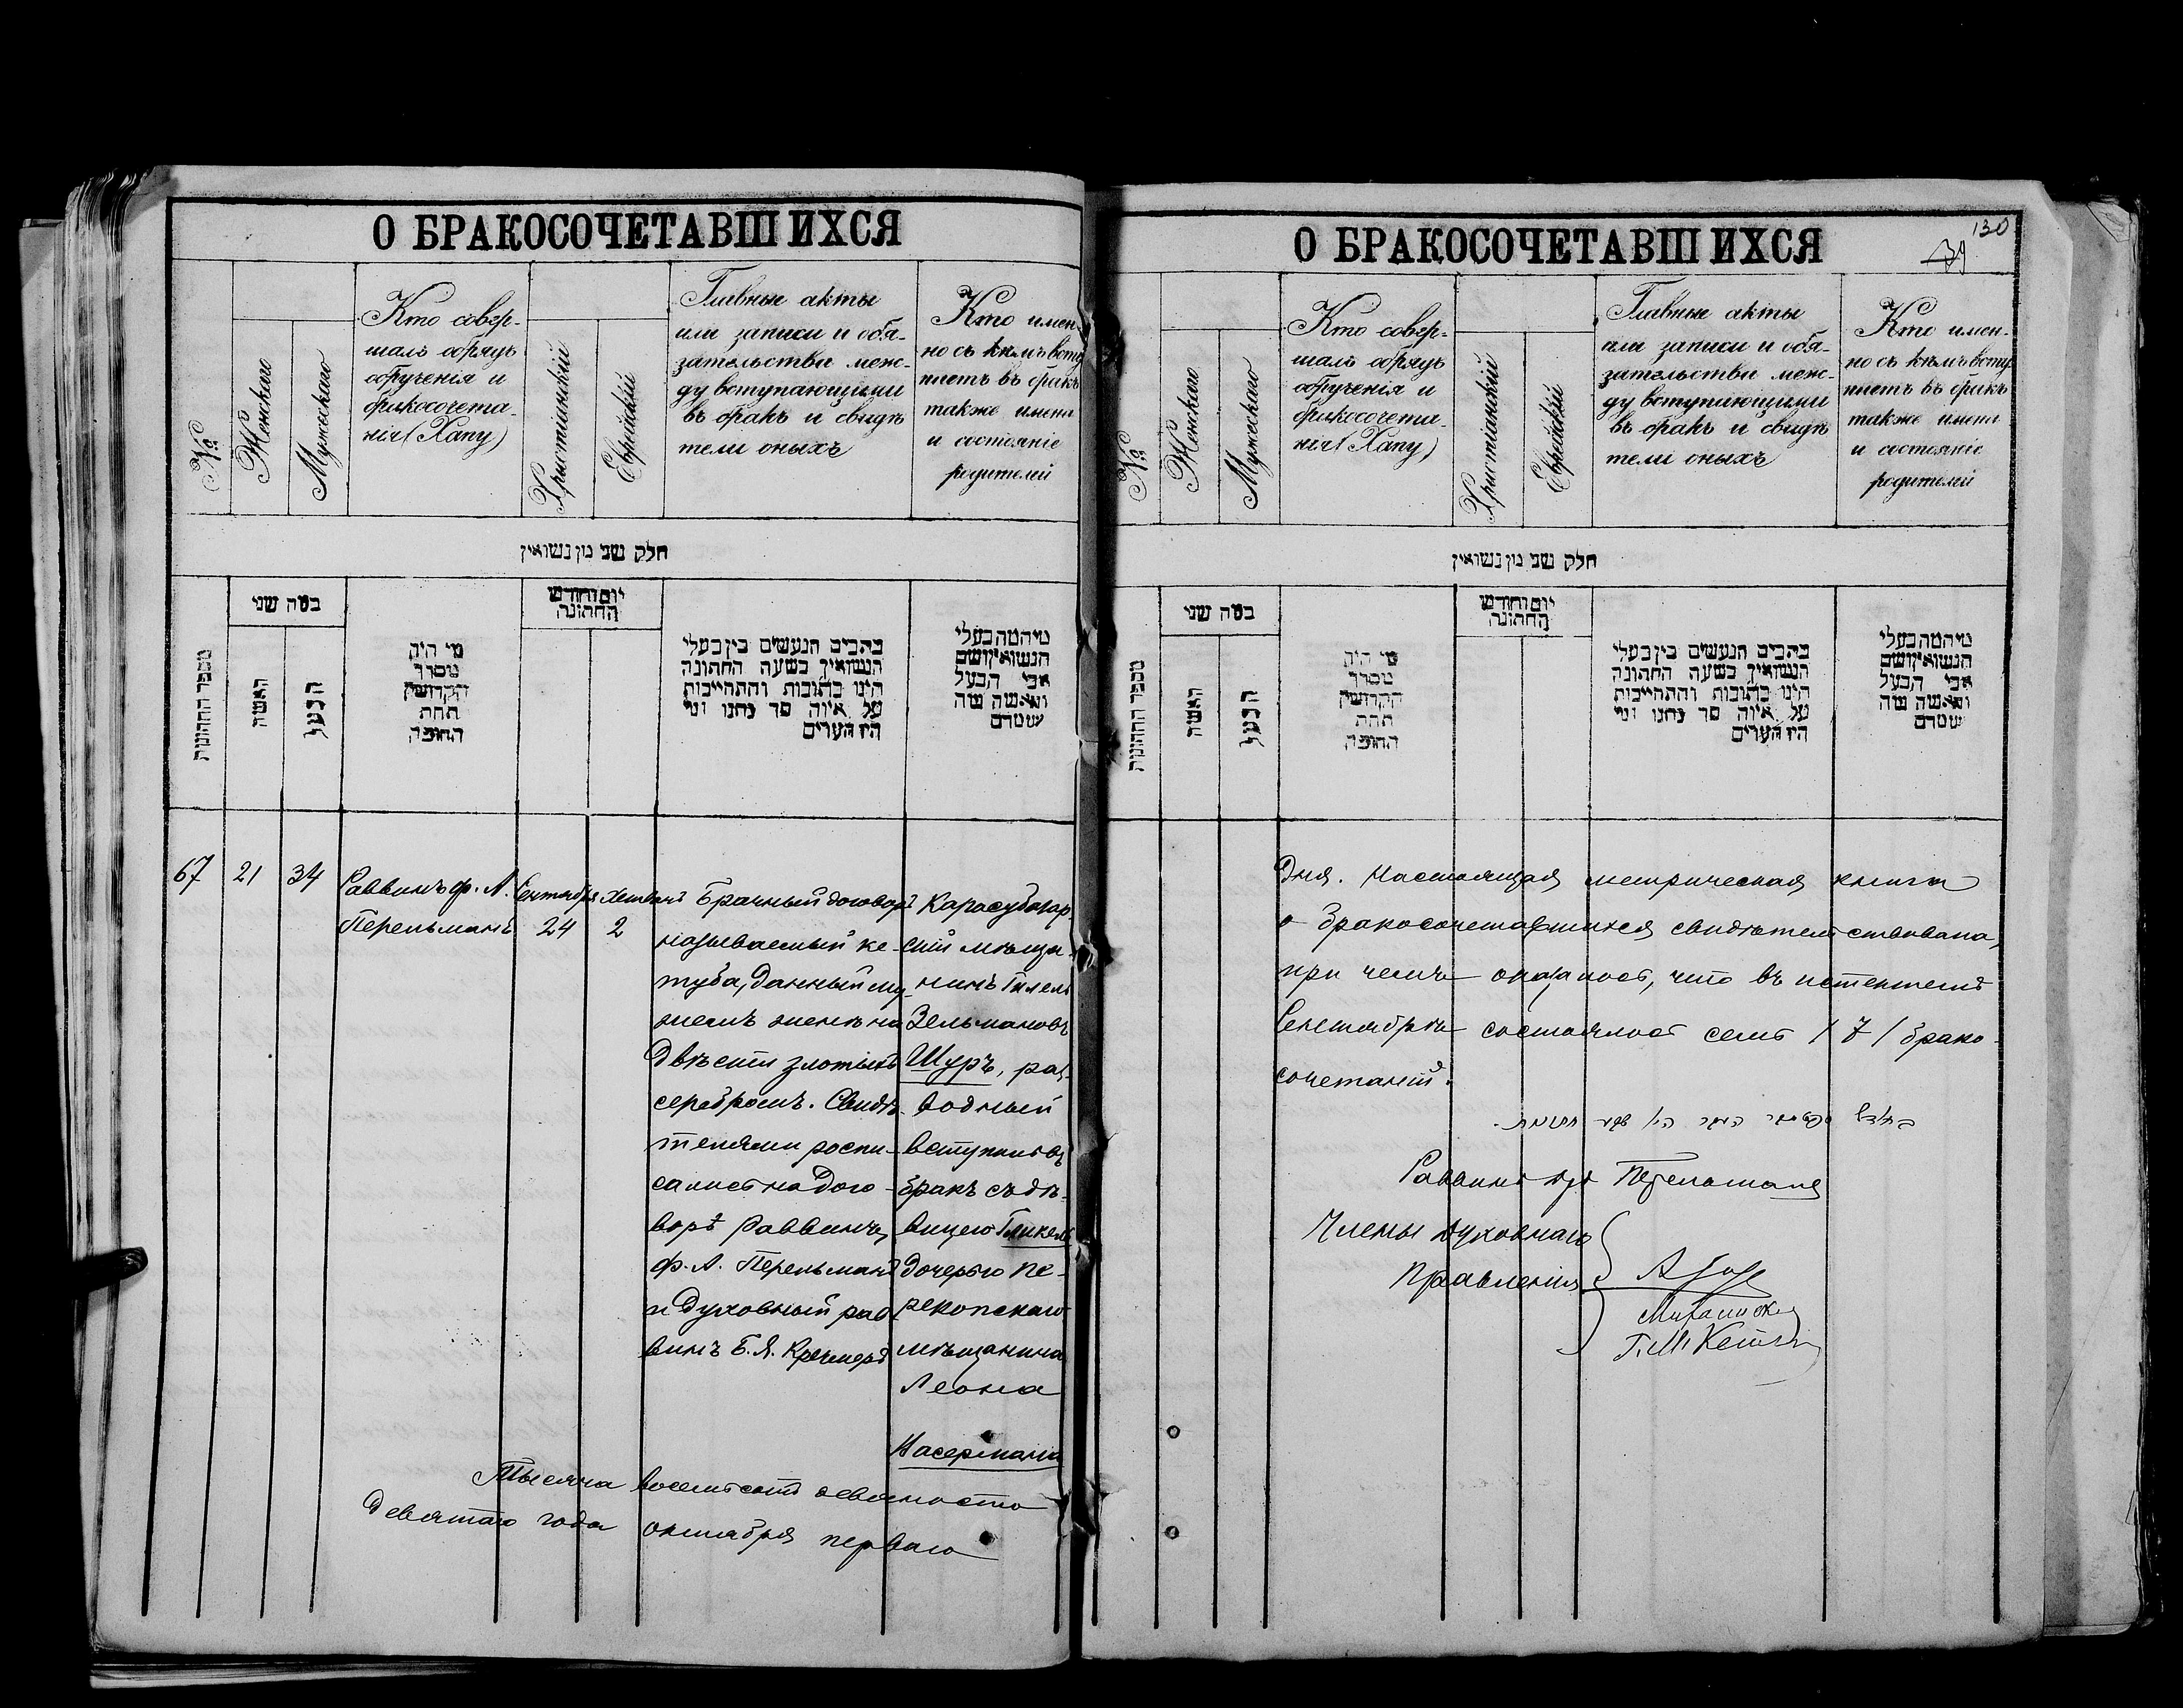 О БРАКОСОЧЕТАВШИХСЯ
№
Женскаго
Мужескаго
Кто совер-
шалъ обрядъ
обрученія и
бракосочета-
нія (Хапу)
Христіанскій
Еврейскій
Главные акты
или записи и обя-
зательства меж-
ду вступающими
въ бракъ и свидѣ
тели оныхъ
Кто имен-
но съ кѣмъ всту
паетъ въ бракъ
также имена
и состояніе
родителей
חלק שני מן נשואין
מספר החתונות
בטה שני
האשה
הבעל
מי היה
מסדר
הקדושין
תחת
החופה
יום וחודש
החתונה
כתבים הנעשים בין בעלי
הנשואין בשעה החתונה
היינו כתובות והתחייבות
על איזה סך נתנו ומי
היו הערים
מי המה בעלי
הנשואין ושם
אבי הבעל
והאשה מה
שטרם
67
21
34
Раввинъ ф. А.
Перельманъ
Сентября
24
Хешванъ
2
Брачный договоръ
называемый ке-
туба, данный му-
жемъ женѣ на
Двѣсти злотыхъ
серебромъ. Свидѣ-
телями роспи-
сались на дого-
ворѣ Раввинъ
ф. А. Перельманъ
и Духовный рав
винъ Б. Я. Кречмеръ
Карасубазар
скій мѣща-
нинъ Гилель
Зельмановъ
Шуръ, раз-
водный
вступилъ въ
бракъ съ дѣ-
вицею Гликель
дочерью Пе-
рекопскаго
мѣщанина
Леона
Насермана
Тысяча восемьсотъ девяносто
девятаго года октября перваго
О БРАКОСОЧЕТАВШИХСЯ
130
№
Женскаго
Мужескаго
Кто совер-
шалъ обрядъ
обрученія и
бракосочета-
нія (Хапу)
Христіанскій
Еврейскій
Главные акты
или записи и обя-
зательства меж-
ду вступающими
въ бракъ и свидѣ
тели оныхъ
Кто имен-
но съ кѣмъ всту
паетъ въ бракъ
также имена
и состояніе
родителей
חלק שני מן נשואין
מספר החתונות
בטה שני
האשה
הבעל
מי היה
מסדר
הקדושין
תחת
החופה
יום וחודש
החתונה
כתבים הנעשים בין בעלי
הנשואין בשעה החתונה
היינו כתובות והתחייבות
על איזה סך נתנו ומי
היו הערים
מי המה בעלי
הנשואין ושם
אבי הבעל
והאשה מה
שטרם
Дня. Настоящая метрическая книга
о бракосочетавшихся свидѣтельствована,
при чемъ оказалось, что въ истекшемъ
Сентябрѣ состоялось семь / 7 / брако-
сочетаній.
Раввинъ Перельманъ
Члены духовнаго
Правленія